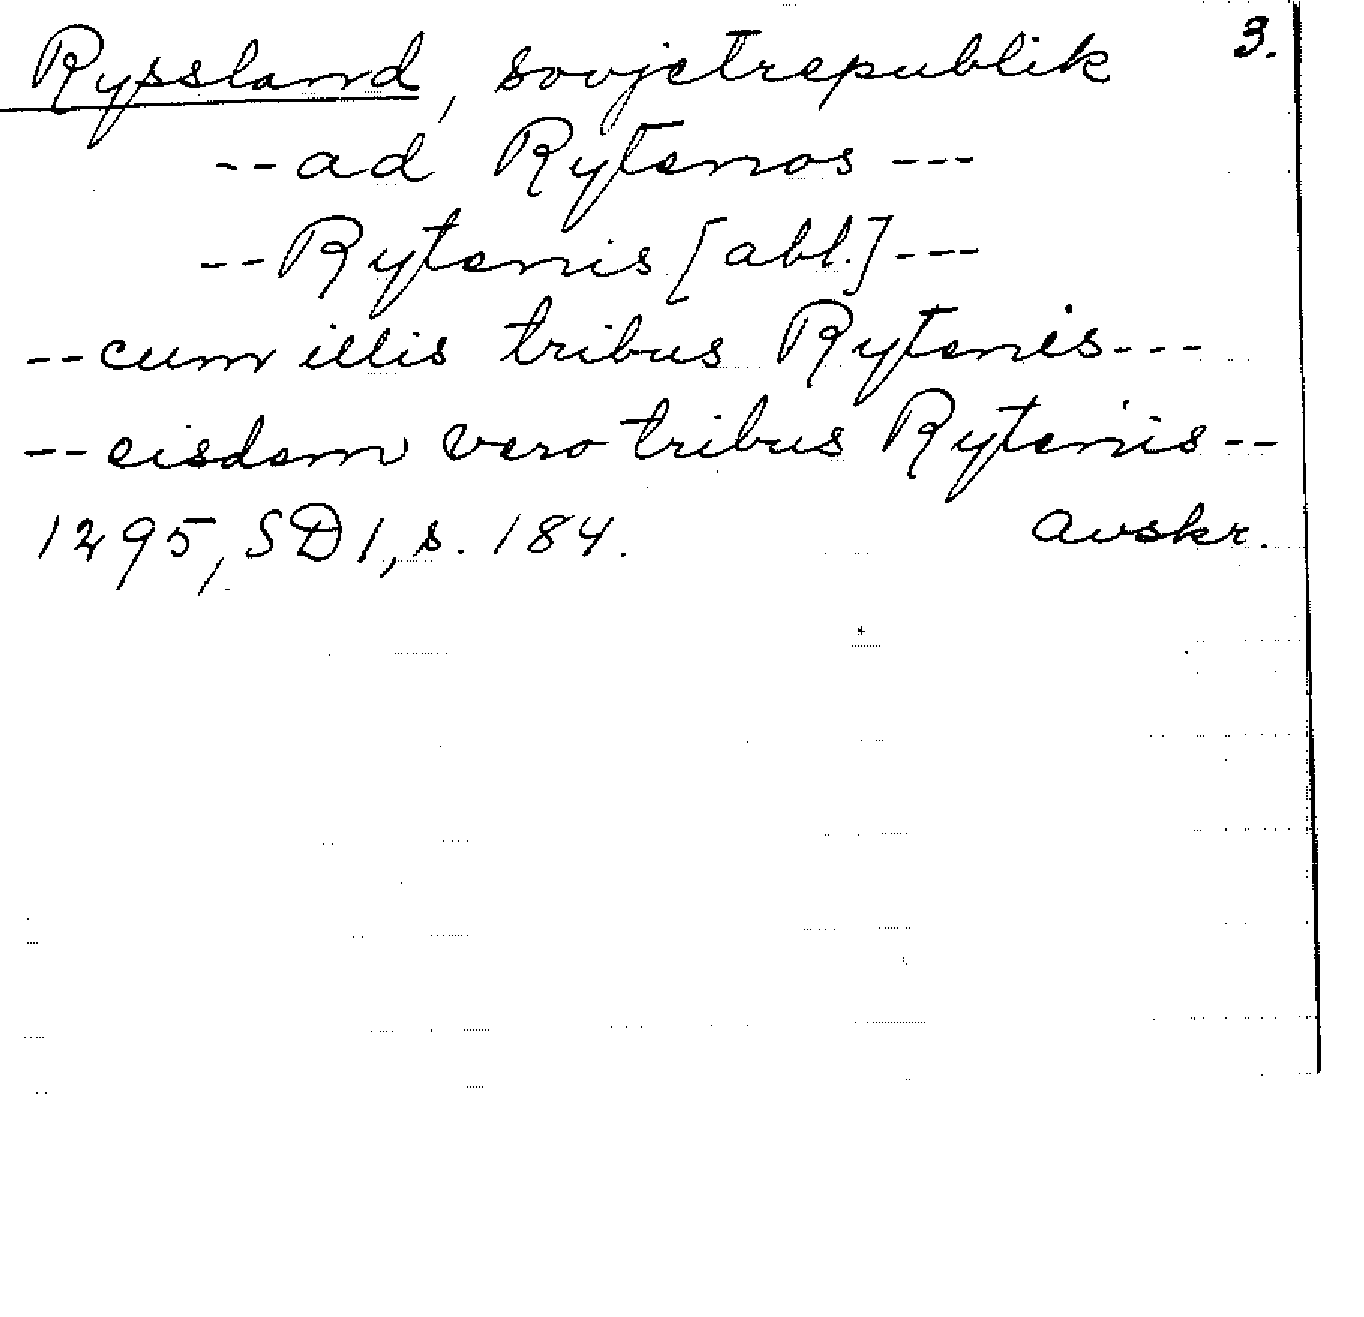 Ryssland, sovjetrepublik 3.
--ad Rytenos---
--Rytenis [abl.]---
--cum illis tribus Rytenis---
--eisdem vero tribus Rytenis--
1295, SD 1, s. 184. avskr.